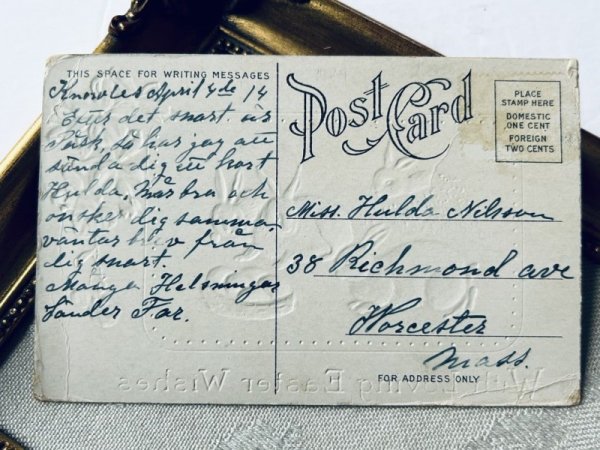 THIS SPACE FOR WRITING MESSAGES
Post Card
PLACE
STAMP HERE
DOMESTIC
ONE CENT
FOREIGN
TWO CENTS
Knowles April 4de 14
det snart är
Påsk så har jag att
sända dig ett kort
Hulda, Mår bra och
önsker dig samma,
väntar brev från
dig snart.
Många Helsningar
Sänder Far.
Miss. Hulda Nilsson
38 Richmond ave
Worcester
Mass.
FOR ADDRESS ONLY
With Loving Easter Wishes